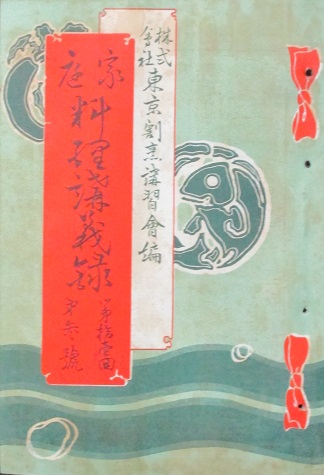 株式会社
東京割烹講習會編
家庭料理講義録
第拾壹回
第参號